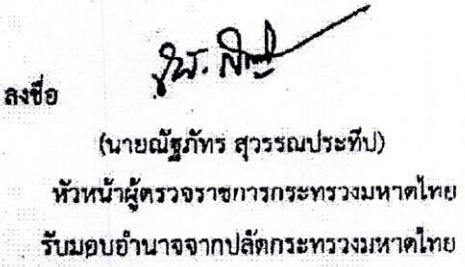 ลงชื่อ
(นายณัฐภัทร สุวรรณประทีป)
หัวหน้าผู้ตรวจราชการกระทรวงมหาดไทย
รับมอบอำนาจจากปลัดกระทรวงมหาดไทย